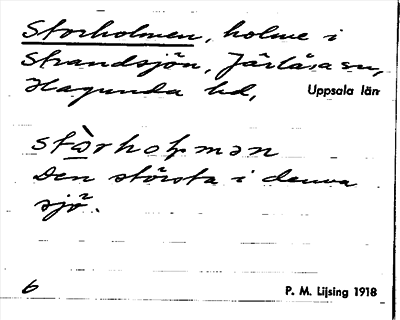 Storholmen, holme i
Strandsjön, Järlåsa sn,
Hagunda hd, Uppsala län
stò̱rhoḷmən
Den största i denna
sjö.
6 P. M. Lijsing 1918